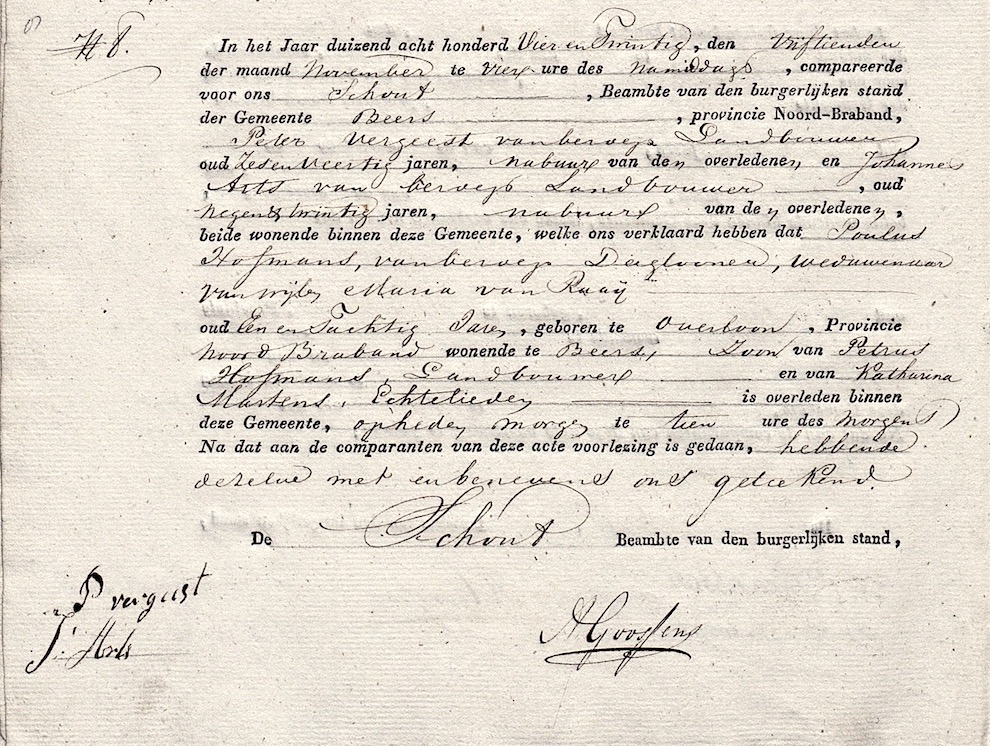 In het Jaar duizend acht honderd Vier en Twintig, den Vijftienden
der maand November te vier ure des namiddags, compareerde
voor ons Schout, Beambte van den burgerlijken stand
der Gemeente Beers, provincie Noord-Braband,
Peter Vergeest van beroep Landbouwer
oud Zes en Veertig jaren, nabuur van den overledenen en Johannes
Arts van beroep Landbouwer, oud
Negen & twintig jaren, nabuur van den overledenen,
beide wonende binnen deze Gemeente, welke ons verklaard hebben dat Poulus
Hofmans, van beroep Daglooner, weduwenaar
van wijlen Maria van Raaij
oud Een en Tachtig Jaren, geboren te Overloon, Provincie
Noord Braband wonende te Beers, Zoon van Petrus
Hofmans, Landbouwer en van Katharina
Martens, Echtelieden is overleden binnen
deze Gemeente, op heden morgen te tien ure des morgens
Na dat aan de comparanten van deze acte voorlezing is gedaan, hebbende
dezelve met en benevens ons geteekend.
De Schout Beambte van den burgerlijken stand,
P vergeest
J. Arts
A Goossens